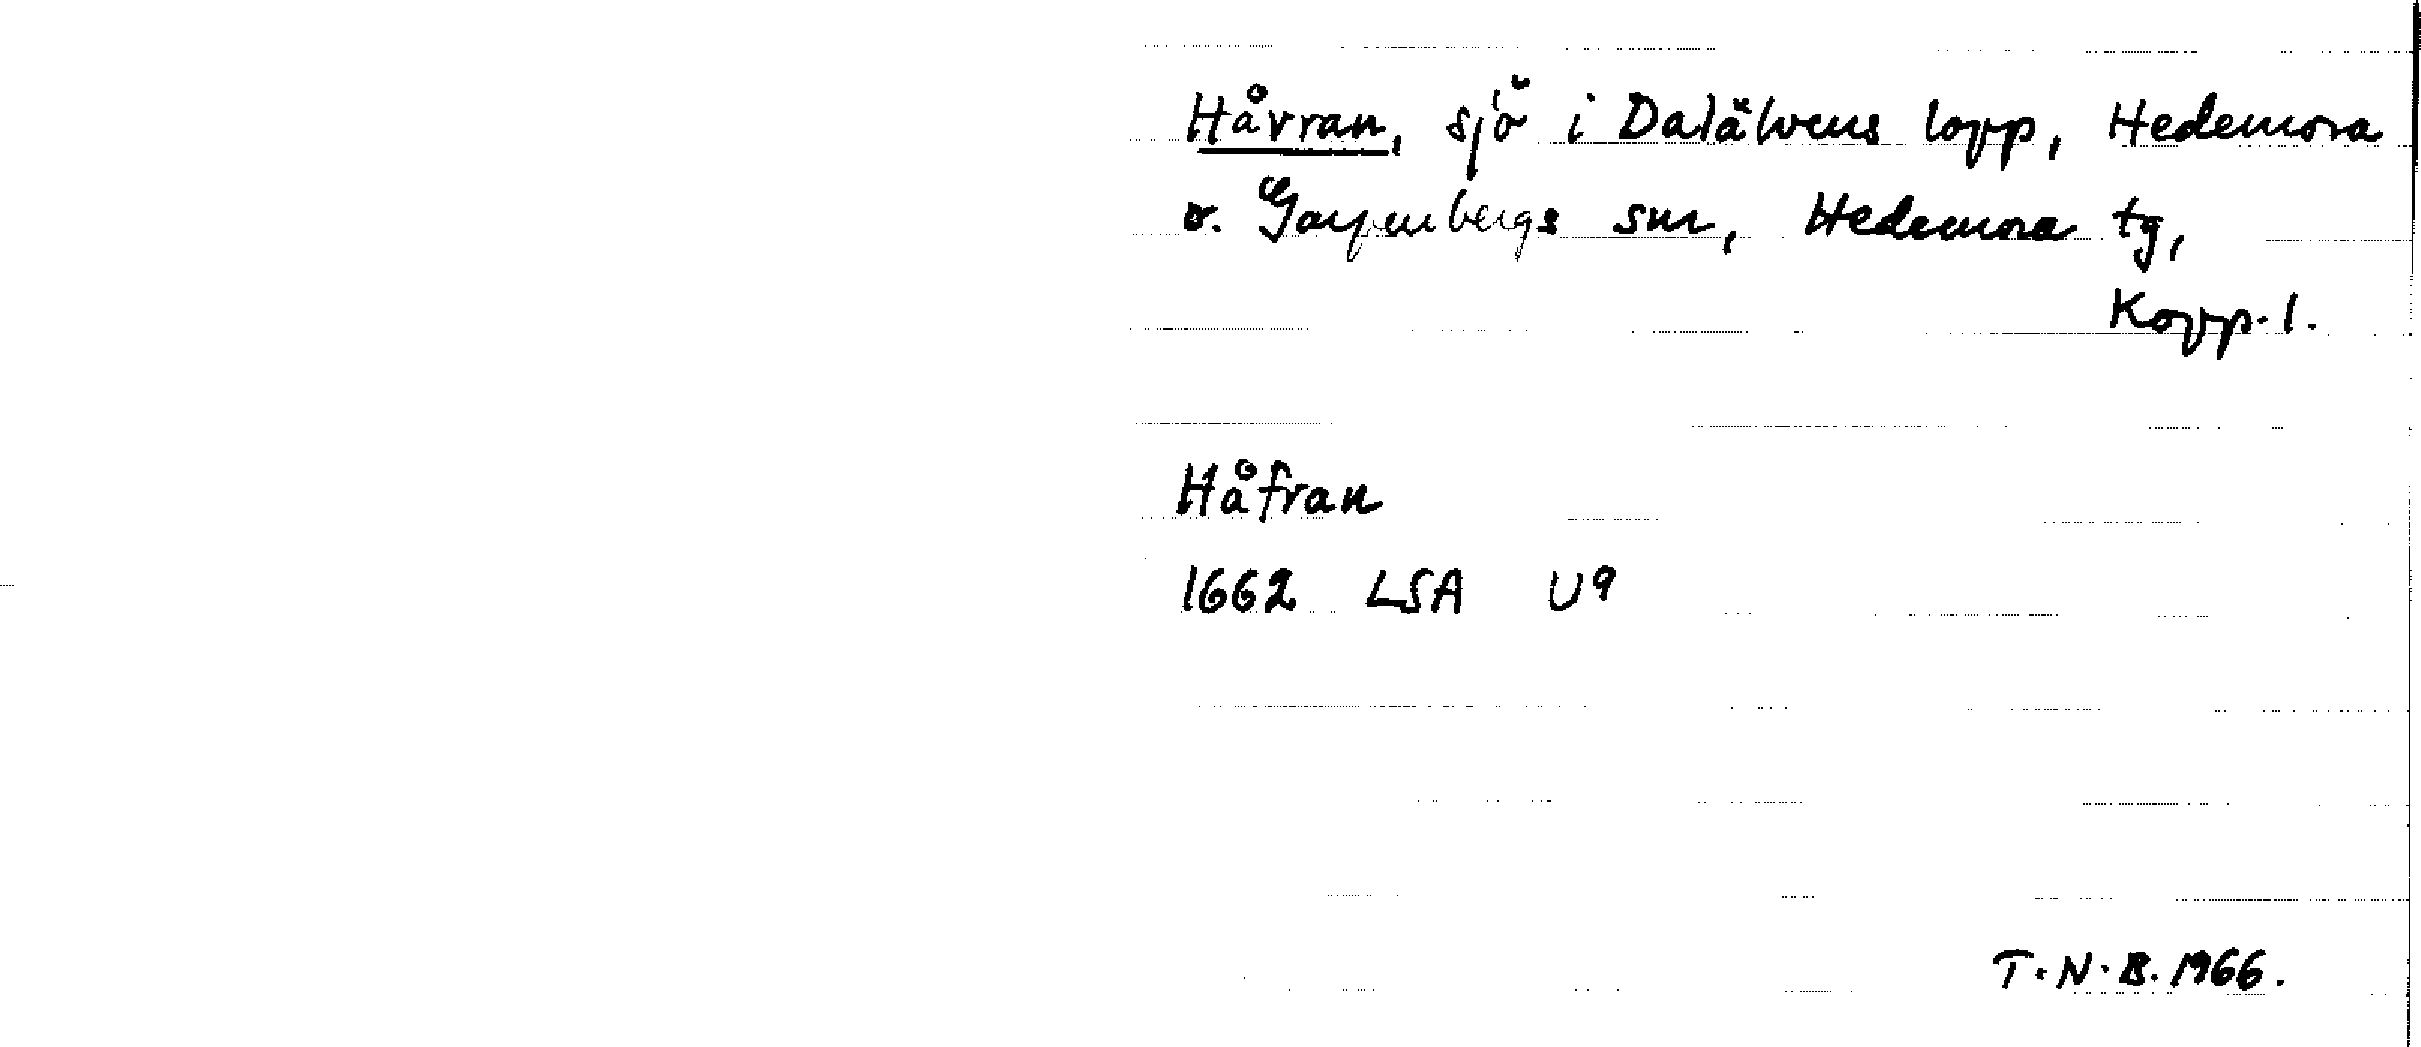 Håvran, sjö i Dalälvens lopp, Hedemora
o. Garpenbergs snr, Hedemora tg,
Kopp. l.
Håfran
1662 LSA U9
T.N.B. 1966.